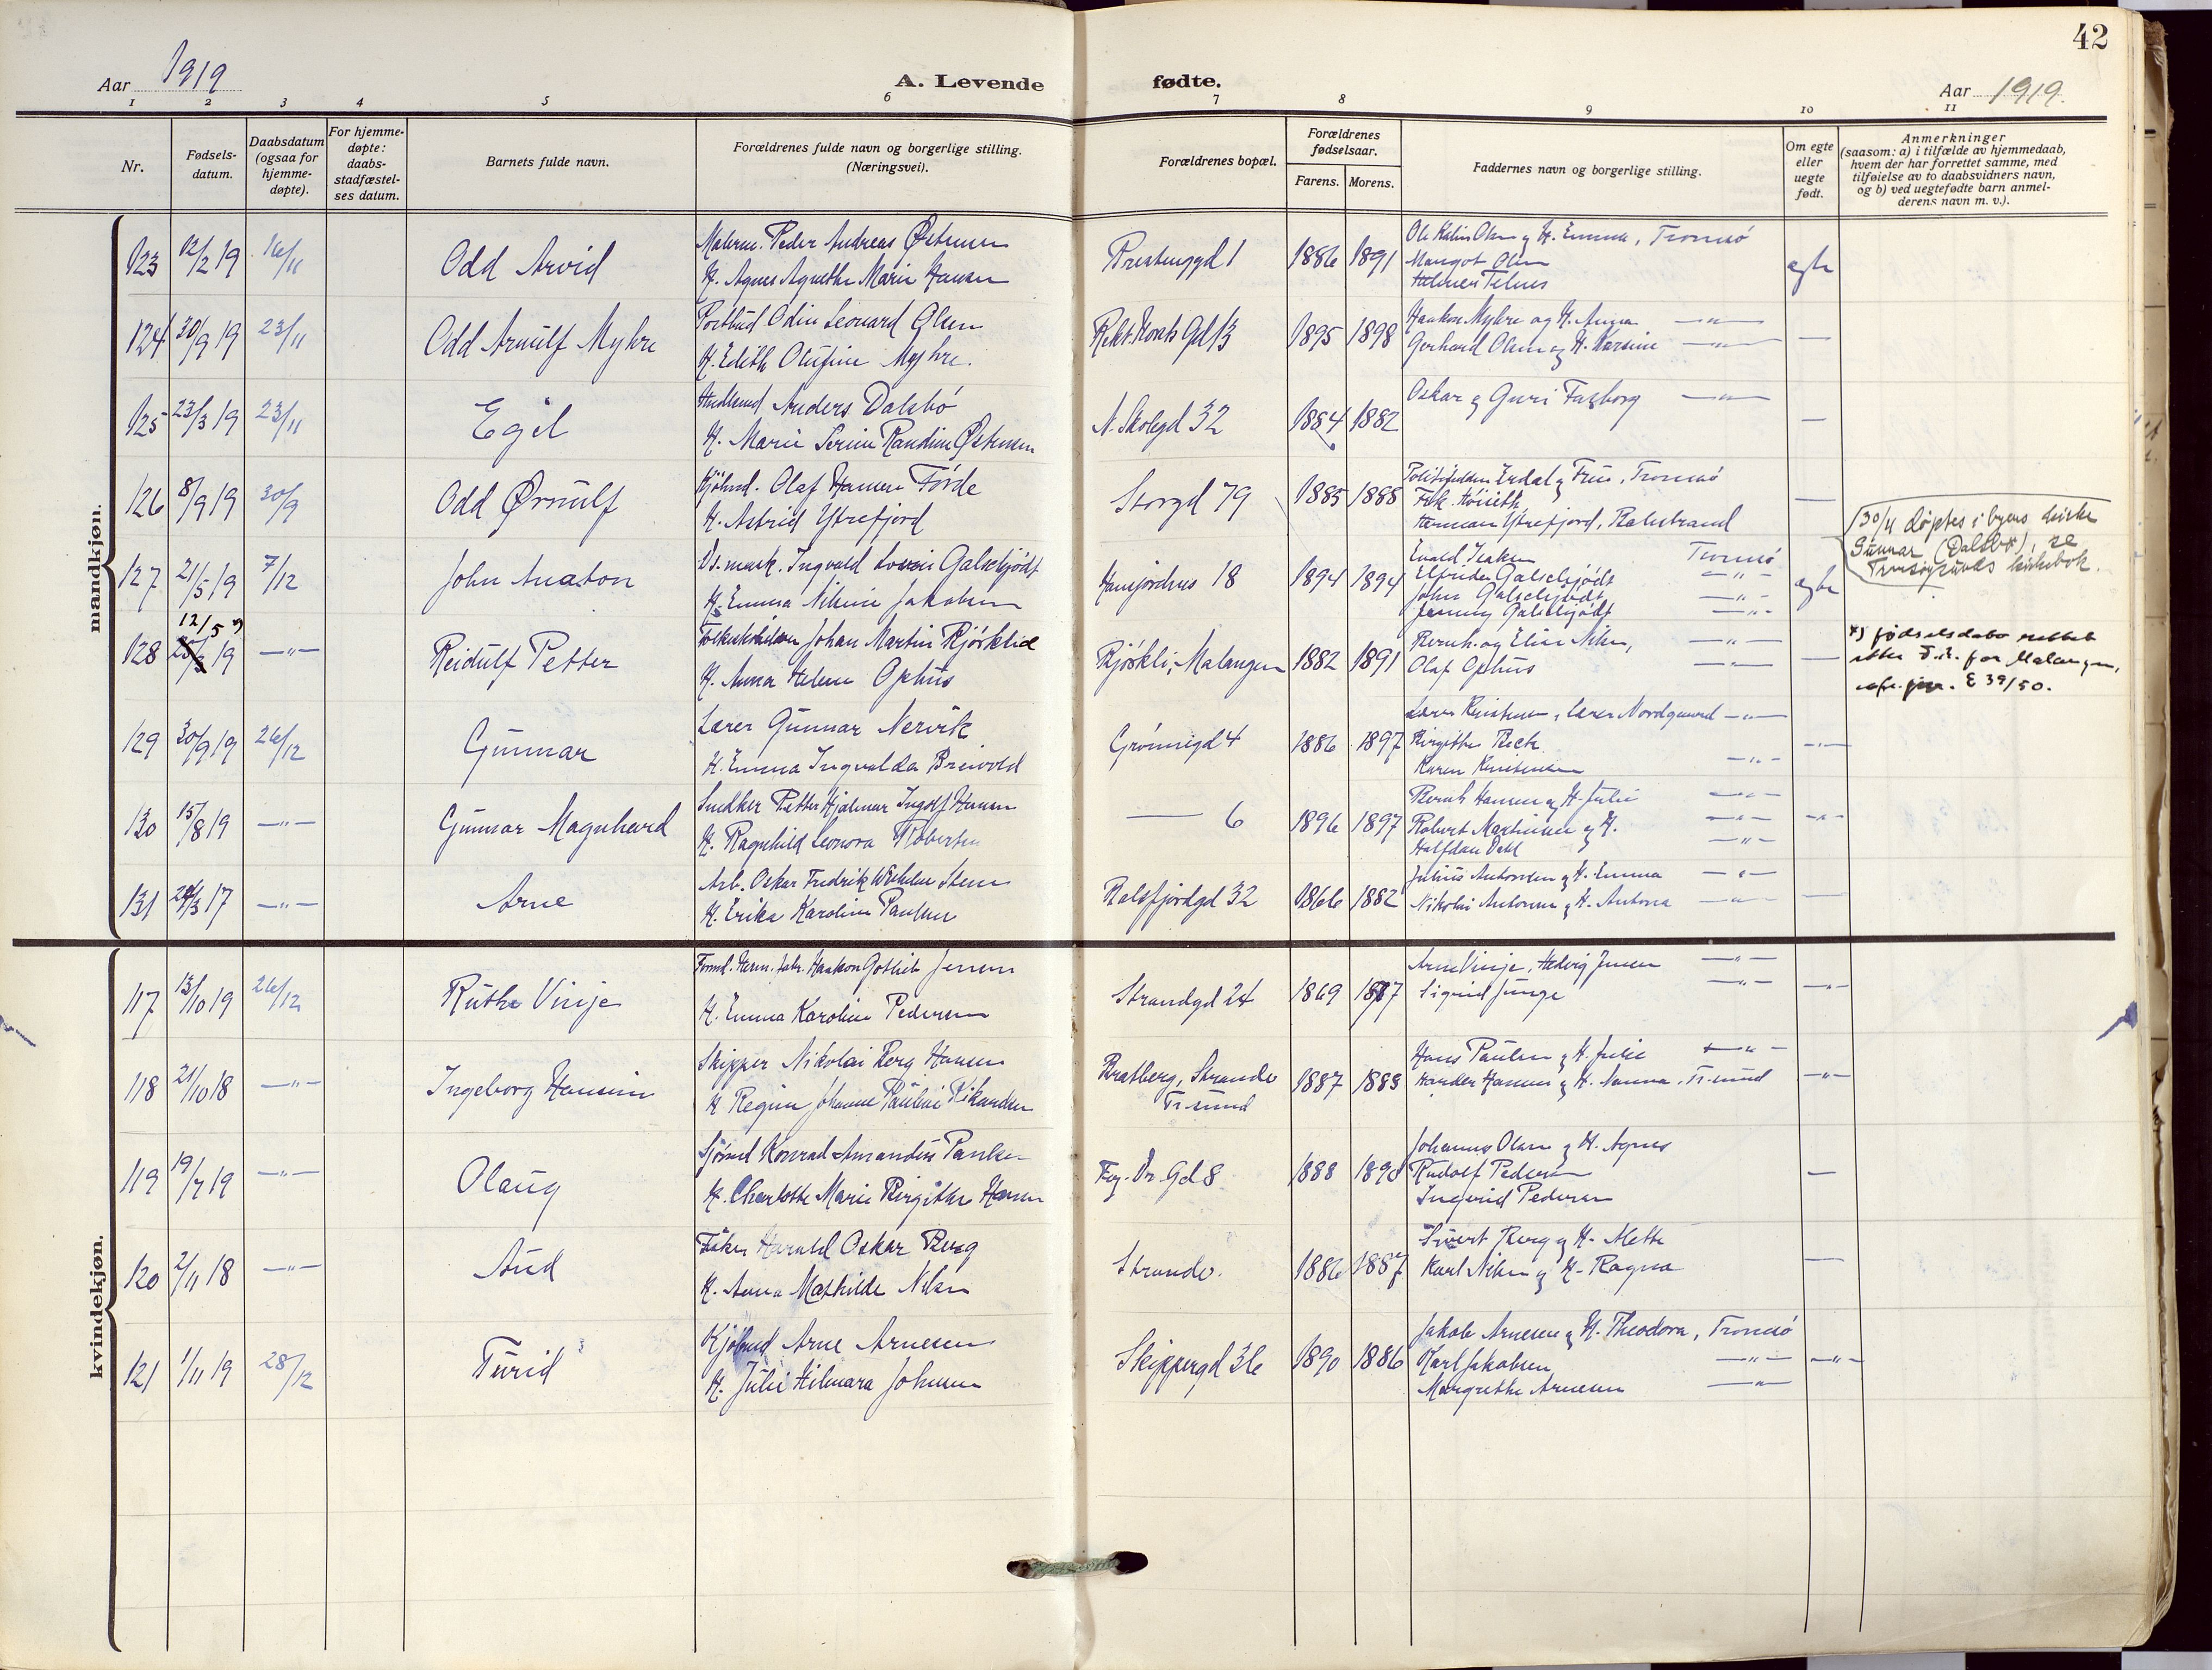 42
Aar 1919
A. Levende fødte.
Aar 1919.
1 2 3 4 5 6 7 8 9 10 11
Nr.
Fødsels-
datum.
Daabsdatum
(ogsaa for
hjemme-
døpte).
For hjemme-
døpte:
daabs-
stadfæstel-
ses datum.
Barnets fulde navn.
Forældrenes fulde navn og borgerlige stilling.
(Næringsvei).
Forældrenes bopæl.
Forældrenes
fødselsaar.
Farens. Morens.
Faddernes navn og borgerlige stilling.
Om egte
eller
uegte
født.
Anmerkninger
(saasom: a) i tilfælde av hjemmedaab,
hvem der har forrettet samme, med
tilføielse av to daabsvidners navn,
og b) ved uegtefødte barn anmel-
derens navn m. v.).
mandkjøn.
123 12/2 19 16/11 Odd Arvid
Peder Andreas Østensen
H. Agnes Agnethe Marie Hansen
1886 1891
H. Emma, Tromsö
Margot Olsen
egte
124 30/9 19 23/11 Odd Arnulf Myhre
Postbud Odin Leonard Olsen
H. Edith Olufine Myhre.
1895 1898
Haakon Myhre og H. Anna —"—
Gerhard Olsen og H. Karsine —"— —
125 23/3 19 23/11 Egil
Anders Dalsbö
H. Marie Serine Randine Østensen
N. Skolegd 32 1884 1882
Oskar og Guri Fagborg —"— —
126 8/9 19 30/9 Odd Ørnulf
Kjöbmd. Olaf Hansen Förde
H. Astrid Ytrefjord
Storgd 79 1885 1888
Erdal og Frue, Tromsö
Herman Ytrefjord, Balestrand —
30/11 döptes i byens kirke
Gunnar (Dalsbö), se
Tromsøysunds kirkebok.
127 21/5 19 7/12 John Anaton
Ingvald Galschjödt
H. Emma Nikine Jakobsen
Hansjordnes 18 1894 1894
Evald Isaksen Tromsö
Elfrida Galschjödt —"—
John Galschjödt —"—
Jenny Galschjödt —"—
egte
128 12/5 *) 19 —"— Reidulf Petter
Johan Martin Bjørklid
H. Anna Helene Ophus
Bjørkli, Malangen 1882 1891
Bernh. og Elise Nilsen, —"—
Olaf Ophus —"— —
*) fødselsdato rettet
etter for Malangen,
E 39/50.
129 30/9 19 26/12 Gunnar
Lærer Gunnar Nervik
H. Emma Ingvalda Breivold
Grönnegd 4 1886 1897
Lærer Kristensen, Lærer Nordgaard —"—
Birgitte Beck
Karen Kristensen —"— —"—
130 15/8 19 —"— Gunnar Magnhard
Snedker Petter Hjalmar Ingolf Hansen
H. Ragnhild Leonora Robertsen
— 6 1896 1897
Bernh Hansen og H. Julie —"—
Robert Martinsen og H. —"—
Halfdan Dahl —"— —"—
131 17 —"— Arne
Arb. Oskar Fredrik Wilhelm Steen
H. Erika Karoline Paulsen
Balsfjordgd 32 1866 1882
Julius Antonsen og H. Emma —"—
Nikolai Antonsen og H. Antona —"— —
kvindekjøn.
117 13/10 19 26/12 Ruth Vinje
Haakon Gotlieb Jensen
H. Emma Karoline Pedersen
Strandgd 24 1869
Arne Vinje, Hedvig Jensen —"—
Sigrid Junge —"— —"—
118 21/10 18 —"— Ingeborg Hansine
Skipper Nikolai Berg Hansen
H Regine Johanne Pauline Rikardsen
Bratberg, Strande
Tr.sund
1887 1888
Hans Paulsen og H. Julie —"—
Harder Hansen og H. Nanna, Tr.sund —"—
119 19/7 19 —"— Olaug
Sjömd Konrad Amandus Paulsen
H. Charlotte Marie Birgitte Hansen
1888 1890
Johannes Olsen og H. Agnes
Rudolf Pedersen
Ingerid Pedersen —
120 2/11 18 —"— Aud
Fisker Harald Oskar Berg
H. Anna Mathilde Nilsen
Strande. 1886 1887
Sivert Berg og H. Mette
Karl Nilsen og H. Ragna —
121 1/11 19 28/12 Turid
Kjöbmd Arne Arnesen
H. Julie Hilmara Johnsen
Skippergd 36 1890 1886
Jakob Arnesen og H. Theodora, Tromsö
Karl Jakobsen —"— —"—
Margrethe Arnesen —"—